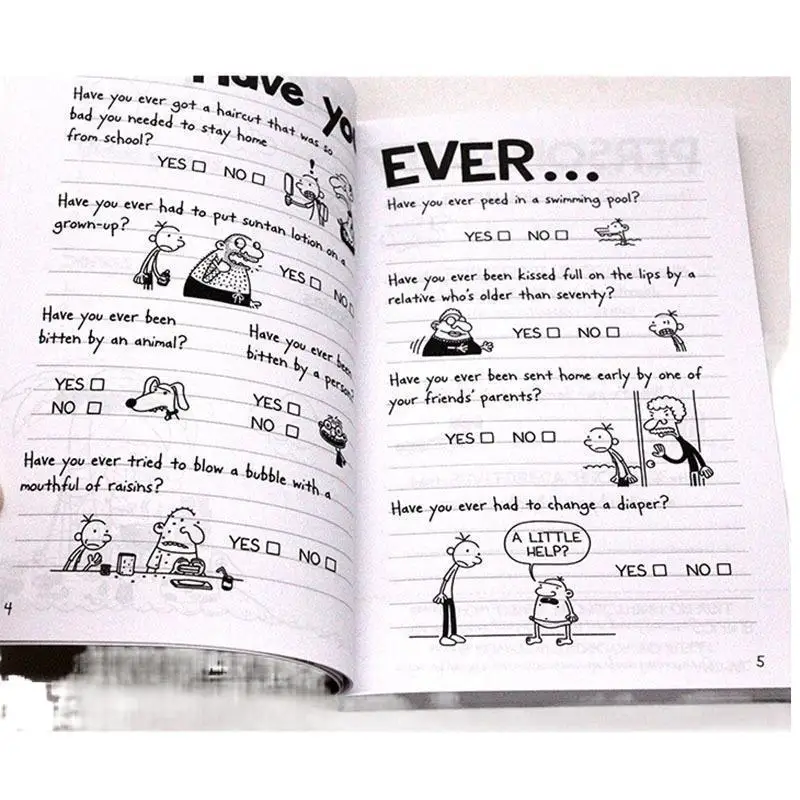 Have you
Have you ever got a haircut that was so
bad you needed to stay home
from school?
YES NO
!
Have you ever had to put suntan lotion on a
grown-up?
YES
NO
Have you ever been
bitten by an animal?
YES
NO
Have you ever been
bitten by a person?
YES
NO
Have you ever tried to blow a bubble with a
mouthful of raisins?
YES NO
4
EVER...
Have you ever peed in a swimming pool?
YES NO
Have you ever been kissed full on the lips by a
relative who's older than seventy?
YES NO
Have you ever been sent home early by one of
your friends' parents?
YES NO
Have you ever had to change a diaper?
A LITTLE
HELP?
YES NO
5